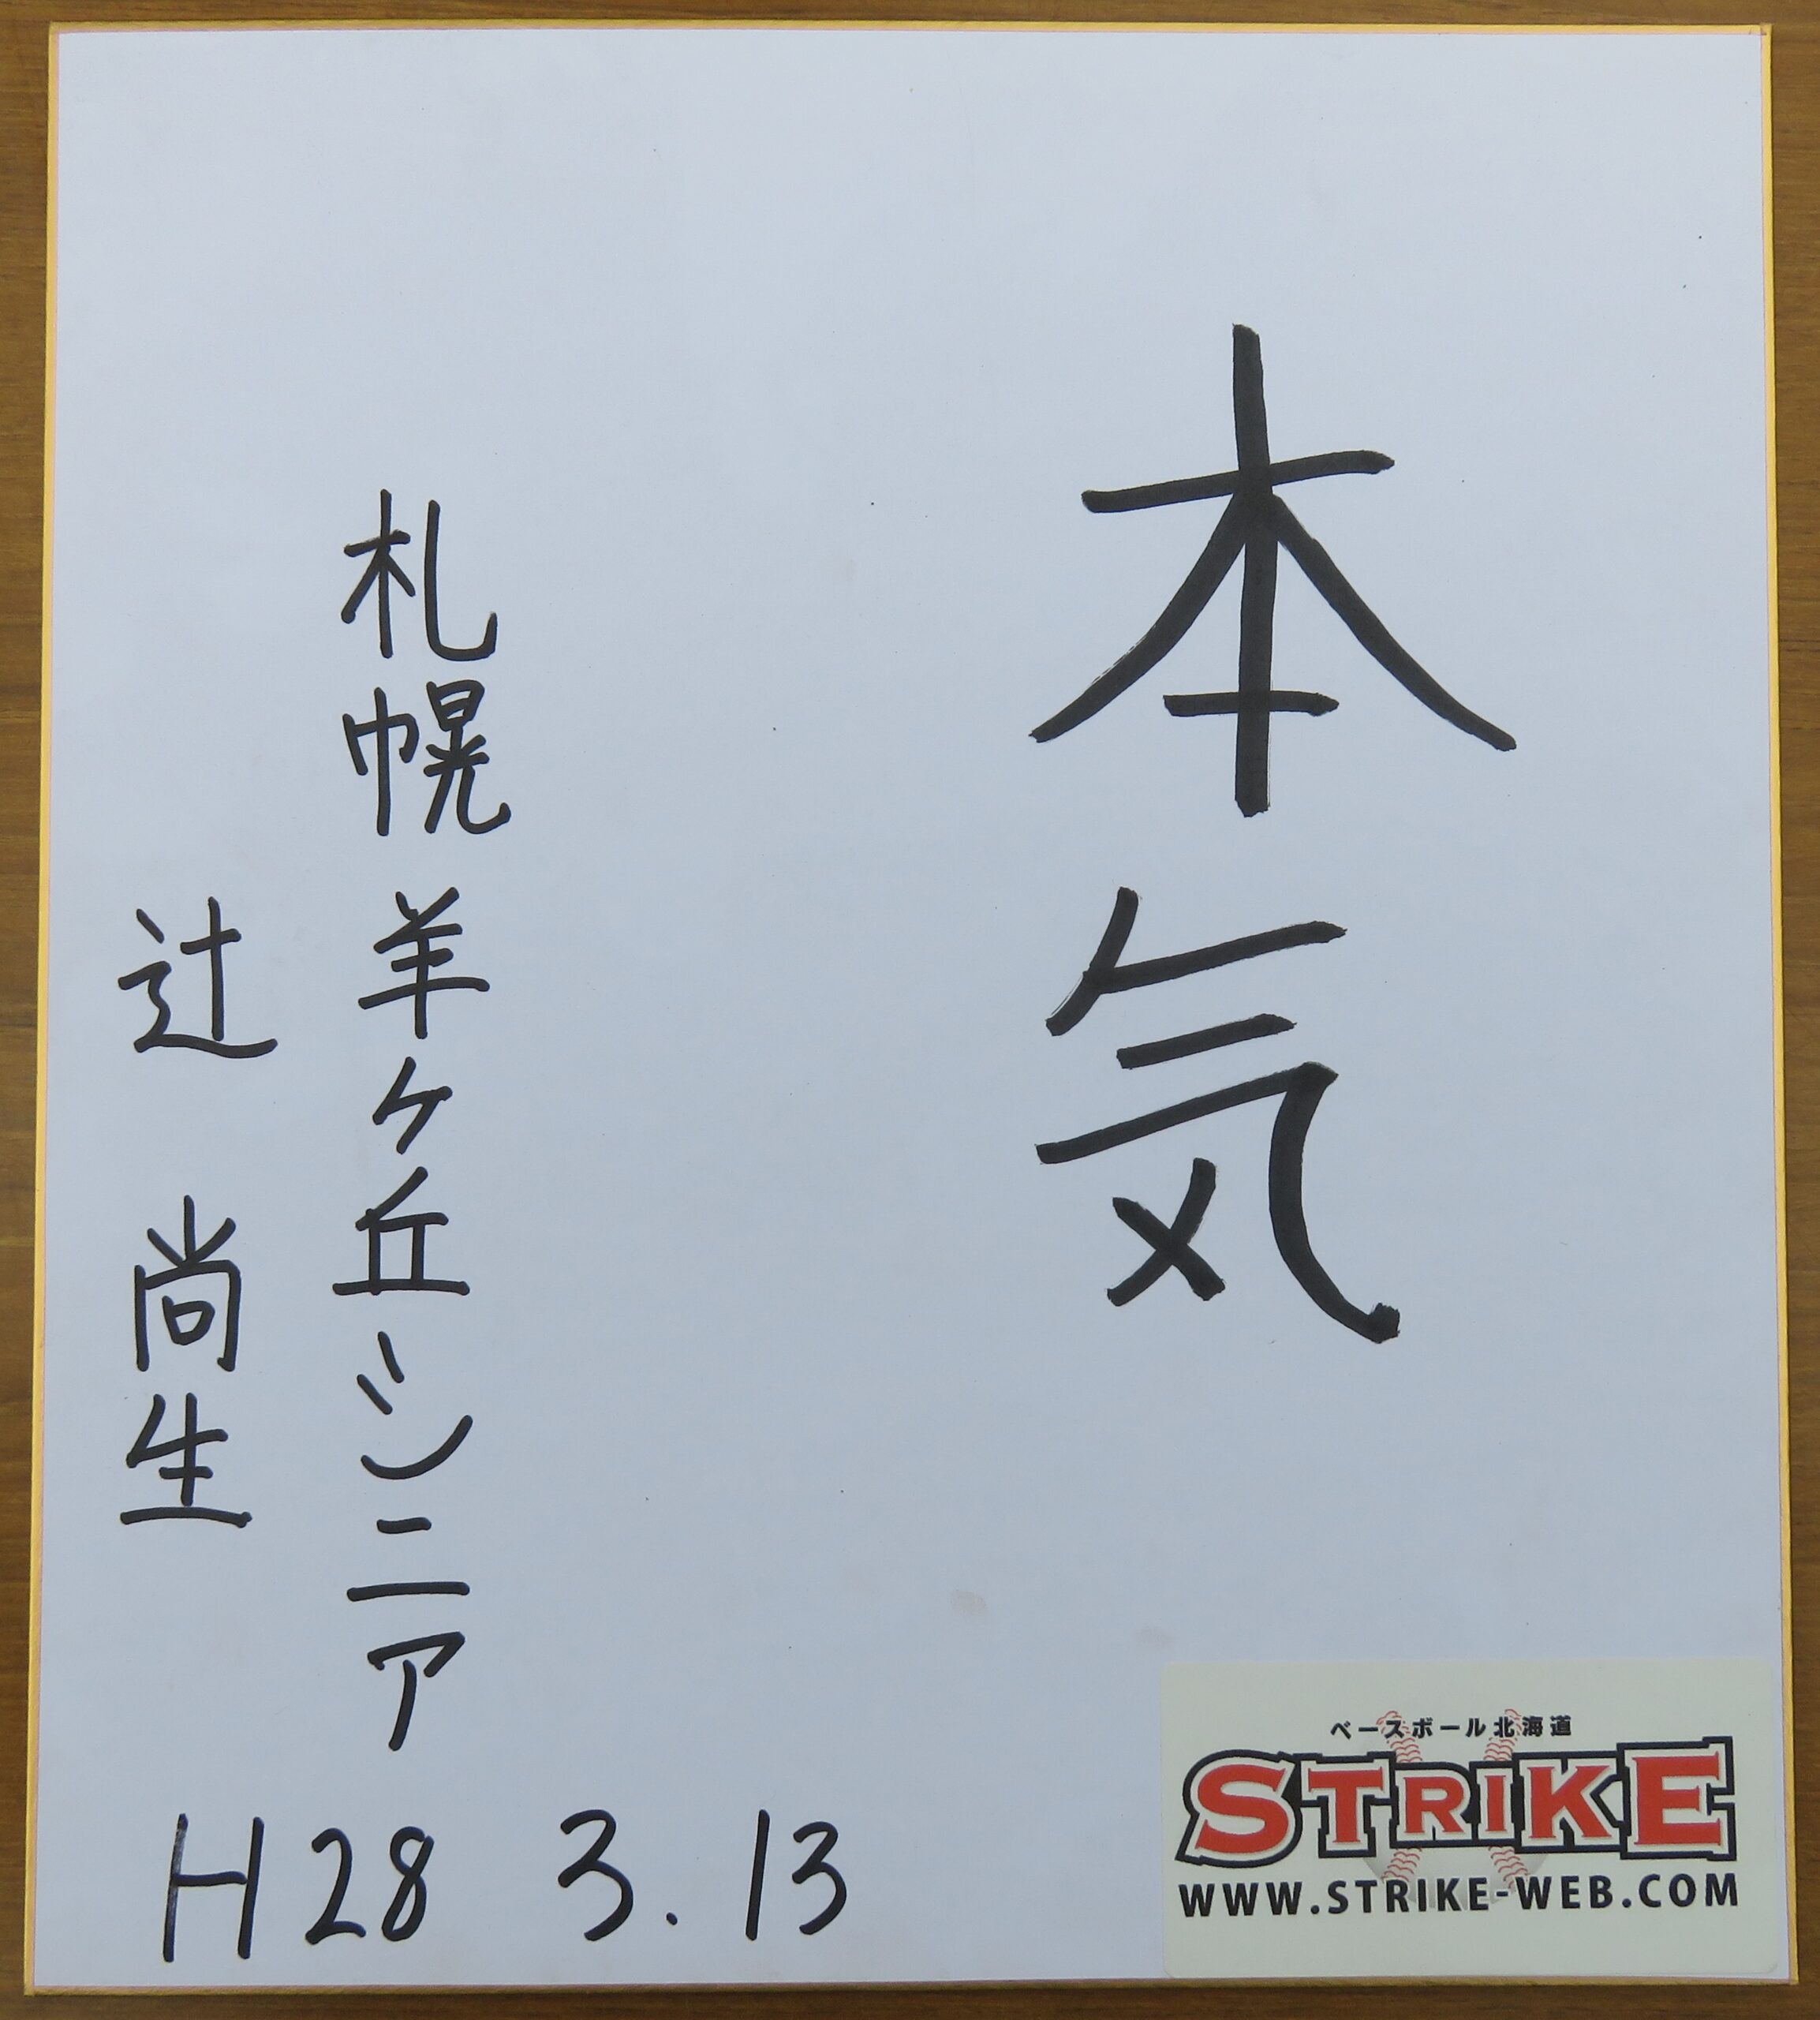 本気
札幌羊ヶ丘シニア
辻 尚生
H28 3.13
ベースボール北海道
STRIKE
WWW.STRIKE-WEB.COM